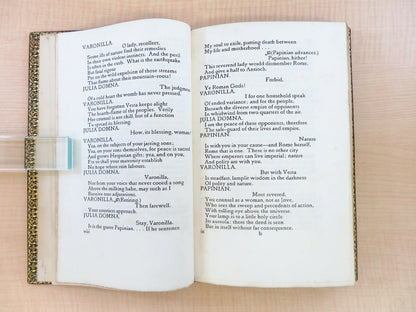 VARONILLA. O lady, recollect,
Some ills of nature find their remedies
In their own violent instincts. And the peril
Is often in the curb. What is the earthquake
But fatal signal
Put on the wild expulsion of these streams
That flame about their mountain-roots?
JULIA DOMNA. The judgment
Of a cold heart the womb has never pressed.
VARONILLA.
You have forgotten Vesta keeps alight
The hearth-flame of the peoples. Verily
Her counsel is are shill, but of a function
As spread as blessing.
JULIA DOMNA.
How, its blessing, woman?
VARONILLA.
Yea, on the subjects of your jarring sons;
Yea, on your sons themselves, for peace is sacred
And grows Hesperian gifts; yea, and on you,
For in yourself your maternity establish
No hope where faith labours.
JULIA DOMNA.
Varonilla,
Not from your voice that never cooed a song
About the milking babe, may such as I
Receive true admonitions.
VARONILLA. (Retiring.)
Then farewell.
Your nearest approach.
JULIA DOMNA.
Stay, Varonilla.
It is the guest Papinian. . . . If he sentence
viii
My soul to exile, putting death between
My life and motherhood. . . .
(Papinian advances.)
Papinian, hither!
This reverend lady would dismember Rome,
And give a half to Antioch.
PAPINIAN. Forbid,
Ye Roman Gods!
VARONILLA.
I for one household speak
Of ended variance; and for the people,
Beneath the diverse emperors of their world
Embattled in two quarters of the air.
JULIA DOMNA.
I am the peace of these opponents, therefore
The safe-guard of their lives and empire.
PAPINIAN.
Nature
Is with you in your cause—and Rome herself,
Rome that is one. There is no other city
Where emperors can live imperial; nature
And polity are with you.
VARONILLA.
But with Vesta
Is steadfast, lamplit wisdom in the darkness
Of polity and nature.
PAPINIAN.
Most revered,
You counsel as a woman, not as love,
Who sees the sweep and precedents of action,
With rolling eye above the universe.
Your lamp is to a little holy circle
Its aureola: there the deed is seen
But in itself without far consequence.
b